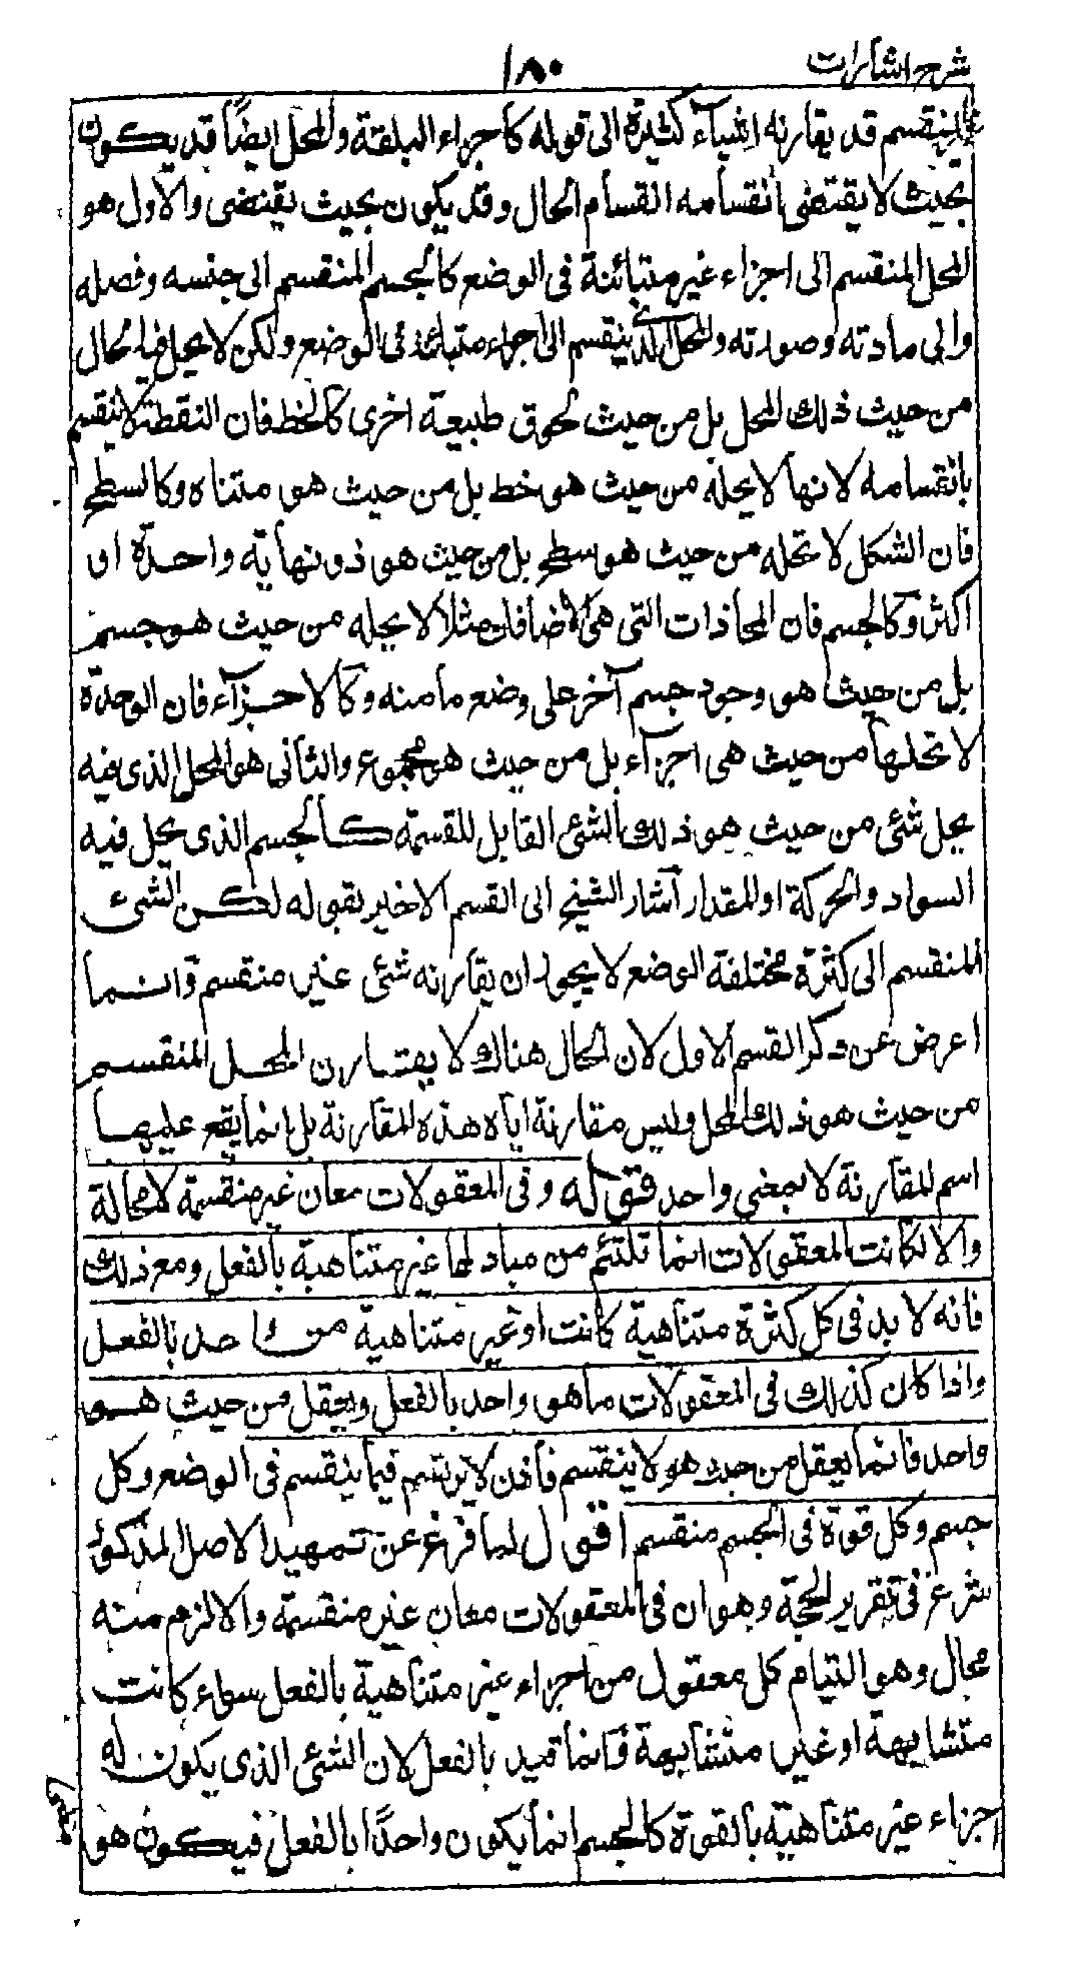 شرح اشارات
١٨٠
المنقسم قد يقارنه اشياء كثيرة الى قوله كأجزاء البلقة والمحل ايضًا قد يكون
بحيث لا يقتضى انقسامه انقسام الحال وقد يكون بحيث يقتضى والاول هو
المحل المنقسم الى اجزاء غير متبائنة فى الوضع كالجسم المنقسم الى جنسه وفصله
والى مادته وصورته والمحل الذى ينقسم الى اجزاء متبائنة فى الوضع ولكن لا يحل فيه حال
من حيث ذلك المحل بل من حيث لحوق طبيعة اخرى كالخط فان النقطة لا تنقسم
بانقسامه لانها لا يحله من حيث هو خط بل من حيث هو متناه وكالسطح
فان الشكل لا تحله من حيث هو سطح بل من حيث هو ذو نهاية واحدة او
اكثر وكالجسم فان المحاذات التى هى الاضافات مثلا لا يحله من حيث هو جسم
بل من حيث هو وجود جسم آخر على وضع ما منه وكالاجزاء فان الوحدة
لا تحلها من حيث هى اجزاء بل من حيث هو مجموع والثانى هو المحل الذى فيه
يحل شئ من حيث هو ذلك الشئ القابل للقسمة كالجسم الذى يحل فيه
السواد والحركة او المقدار أشار الشيخ الى القسم الاخير بقوله لكن الشئ
المنقسم الى كثرة مختلفة الوضع لا يجوز ان يقارنه شئ غير منقسم وانما
اعرض عن ذكر القسم الاول لان الحال هناك لا يقارن المحل المنقسم
من حيث هو ذلك المحل وليس مقارنة اياه هذه المقارنة بل انما يقع عليها
اسم المقارنة لا بمعنى واحد قوله وفى المعقولات معان غير منقسمة لا محالة
والا لكانت المعقولات انما تلتئم من مباد لها غير متناهية بالفعل ومع ذلك
فانه لا بد فى كل كثرة متناهية كانت او غير متناهية من واحد بالفعل
واذا كان كذلك فى المعقولات ما هو واحد بالفعل ويعقل من حيث هو
واحد فانما يعقل من حيث هو لا ينقسم فأذن لا يرتسم فيما ينقسم فى الوضع وكل
جسم وكل قوة فى الجسم منقسم اقول لما فرغ عن تمهيد الاصل المذكور
شرع فى تقرير الحجة وهو ان فى المعقولات معان غير منقسمة والا لزم منه
محال وهو التيام كل معقول من اجزاء غير متناهية بالفعل سواء كانت
متشابهة او غير متشابهة وانما قيد بالفعل لان الشئ الذى يكون له
اجزاء غير متناهية بالقوة كالجسم انما يكون واحدًا بالفعل فيكون هو